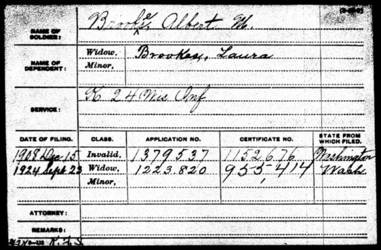 NAME OF SOLDIER: Brookes Albert M.
NAME OF DEPENDENT: Widow, Brookes, Laura
Minor,
SERVICE: K 24 Mis Inf
DATE OF FILING. CLASS. APPLICATION NO. CERTIFICATE NO. STATE FROM WHICH FILED.
1908 Dec 15 Invalid, 1379537 1152676 Washington
1924 Sept 23 Widow, 1223.820 955,414 Wash
Minor,
ATTORNEY:
REMARKS: